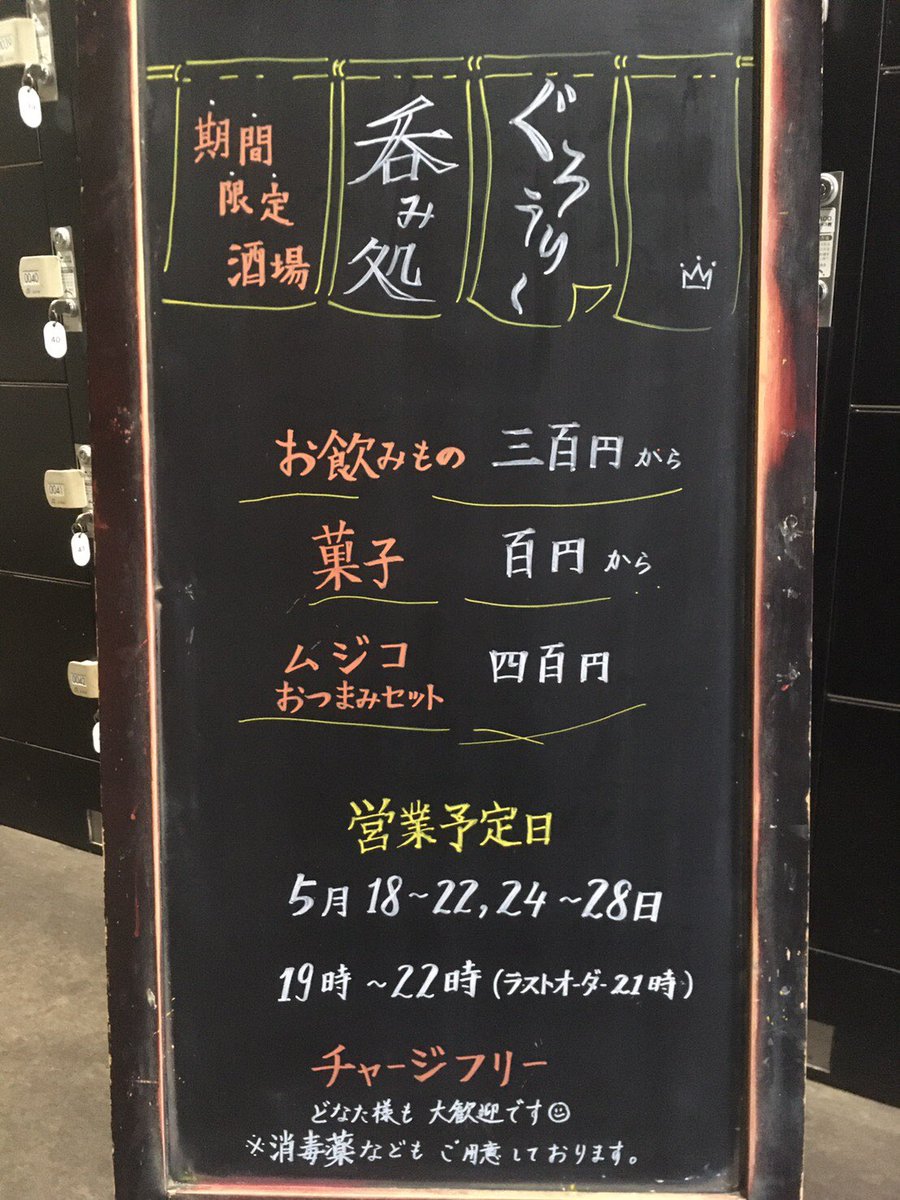 期間
限定
酒場
呑み処
ぐろうりく
お飲みもの 三百円から
菓子 百円から
ムジコ
おつまみセット 四百円
営業予定日
5月18~22,24~28日
19時~22時(ラストオーダー21時)
チャージフリー
どなた様も大歓迎です☺
※消毒薬などもご用意しております。
0040
40
0041